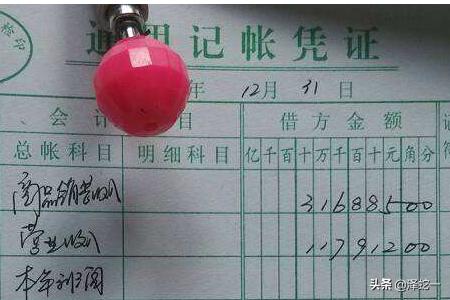 检印
通用记帐凭证
年 12月 31日
会 计 目 借方金额 记
总帐科目 明细科目 亿千百十万千百十元角分 符
商品销售收入 31688500
营业收入 11791200
本年利润
头条 @泽挖一